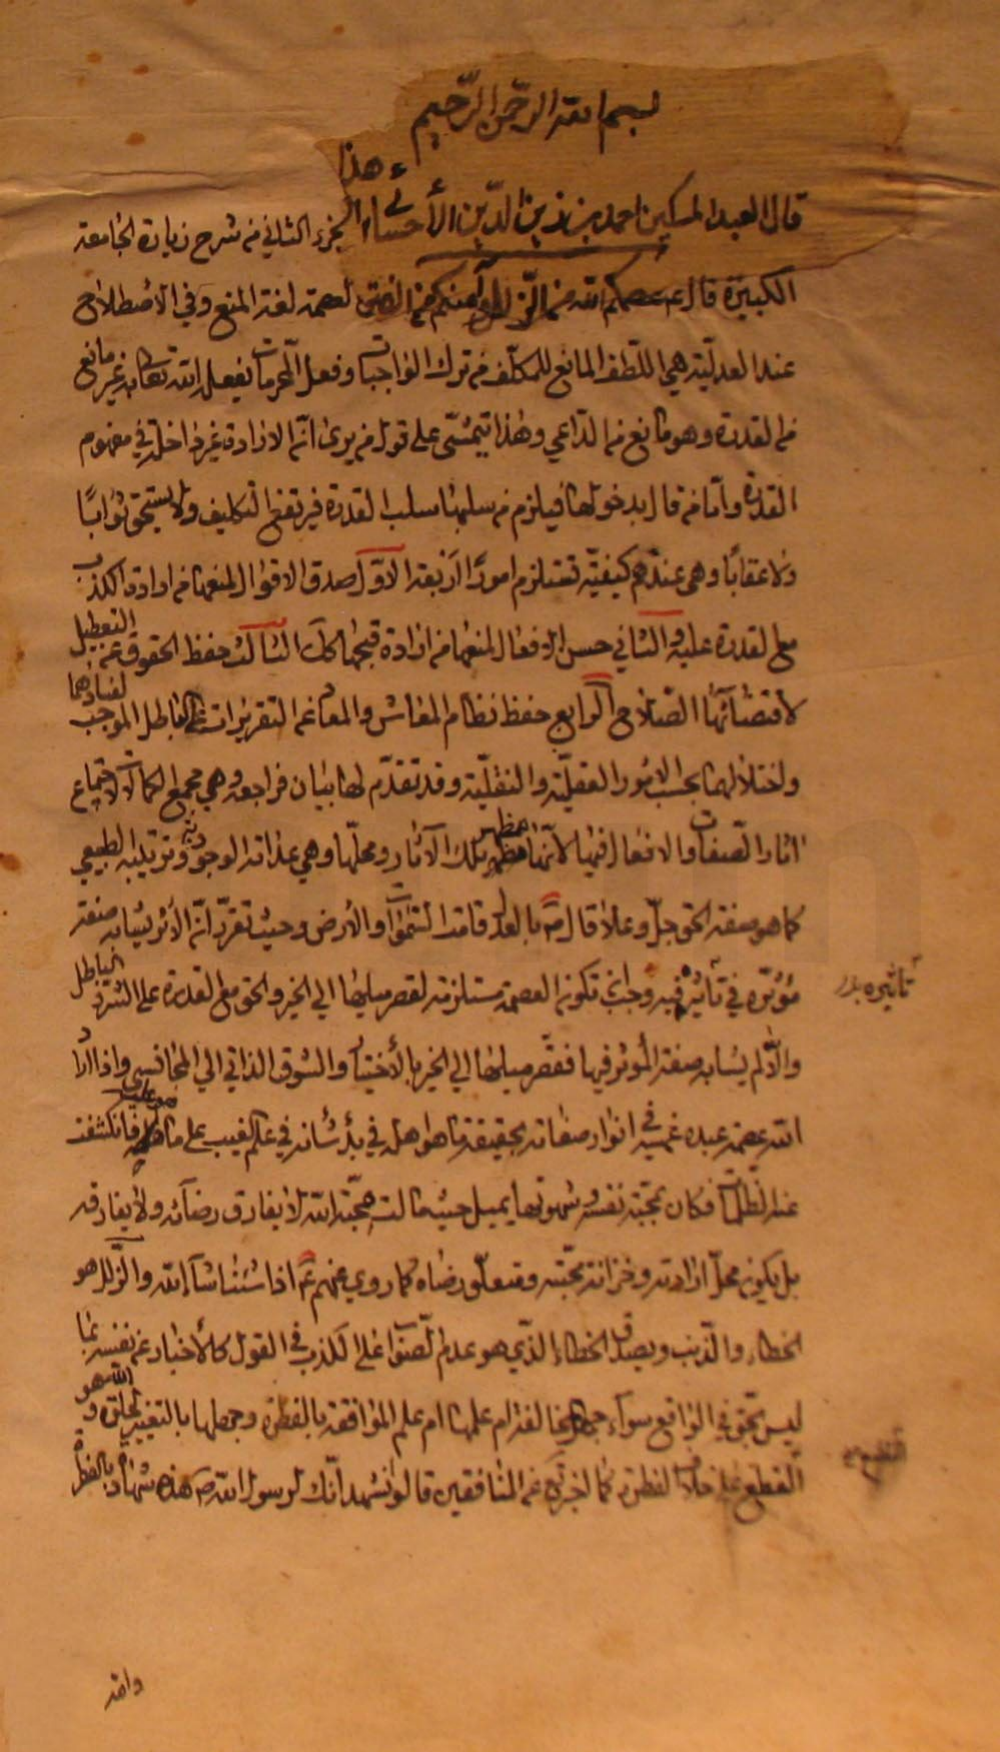 بسم الله الرحمن الرحيم
هذا
قال العبد المسكين احمد بن زين الدين الأحسائي الجزء الثاني من شرح زيارة الجامعة
الكبيرة قال ع عصمكم الله من الزلل وآمنكم من الفتن العصمة لغة المنع وفي الاصطلاح
عند العدلية هي اللطف المانع للمكلف من ترك الواجبات وفعل المحرمات يفعل الله تعالى به غير مانع
من القدرة وهو مانع من الداعي وهذا يتمشى على قول من يرى انّ الارادة غير داخلة في مفهوم
القدرة وامّا من قال بدخولها فيلزم من سلبها سلب القدرة فيرتفع التكليف ولا يستحق ثوابًا
ولا عقابًا وهي عندهم كيفيّة تستلزم امورًا اربعة الاوّل صدق الاقوال المنعها من ارادة الكذب
مع القدرة عليه والثاني حسن الافعال لمنعها من ارادة قبيحها كك الثالث حفظ الحقوق عن التعطيل
لاقتضائها الصّلاح الرابع حفظ نظام المعاش والمعاد عن التقريرات على الباطل الموجب لفسادهما
واختلالهما بحسب الامور العقليّة والنقليّة وقد تقدّم لها بيان فراجعه وهي مجمع الكمالات لاجتماع
اثار الصفات والافعال فيها لانّها مظهر تلك الآثار ومحلّها وهي عدالته الوجودية وترتيبه الطبيعي
كما هو صفة الحق جل وعلا قال ص بالعدل قامت السموات والأرض وحيث تقرّر انّ الأثر يشابه صفة
مؤثره في تأثيره فيه وجب ان تكون العصمة مستلزمة لقصر ميلها الى الخير والحق مع القدرة على الشرّ والباطل
تأثيره بدر
والّا لم يشابه صفة المؤثر فيها فقصر ميلها الى الخير بالأختيار والشوق الذاتي الى المجانس واذا اراد
الله عصمة عبده غمسه في انوار صفاته بحقيقة ما هو اهله في بدء شانه في علم الغيب على ما هو عليه فانكشفت
عنه الظلمات فكان بمحبّة نفسه وشهوتها يميل حيث مالت محبّة الله لا يفارق رضائه ولا يفارقه
بل يكون محل ارادته وخزانة محبّته ومتعلّق رضاه كما روي عنهم ع اذا شئنا شاء الله والزّلل هو
الخطاء والذّنب ويصدق الخطاء الذي هو عدم الصّواب على الكذب في القول كالأخبار عن نفسه بما
ليس بحق في الواقع سواء جهل المخالفة ام علمها ام علم الموافقة بالفطرة وجهلها بالتغيير لخلق الله وهو
القطع على خلاف الفطرة كما اخبر تع عن المنافقين قالوا نشهد انّك لرسول الله ص هذه شهادة بالفطرة